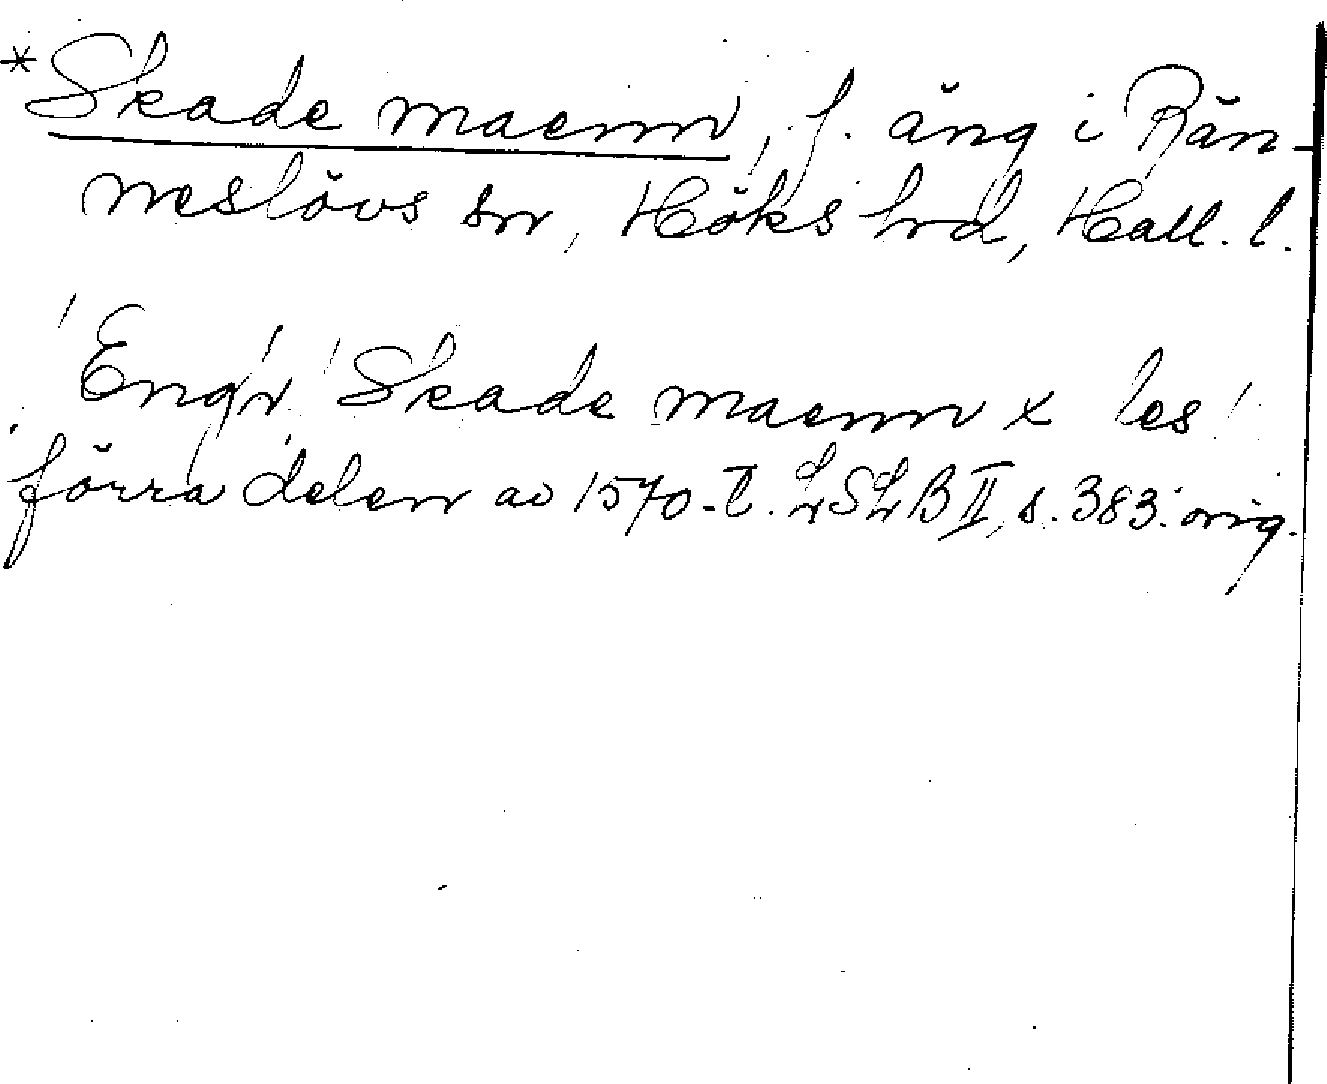 *Skade maenn, f. äng i Rän-
neslövs sn, Höks hrd, Hall. l.
Eng'r Skade maenn x les
förra delen av 1570-t. LSLB II, s. 383. orig.